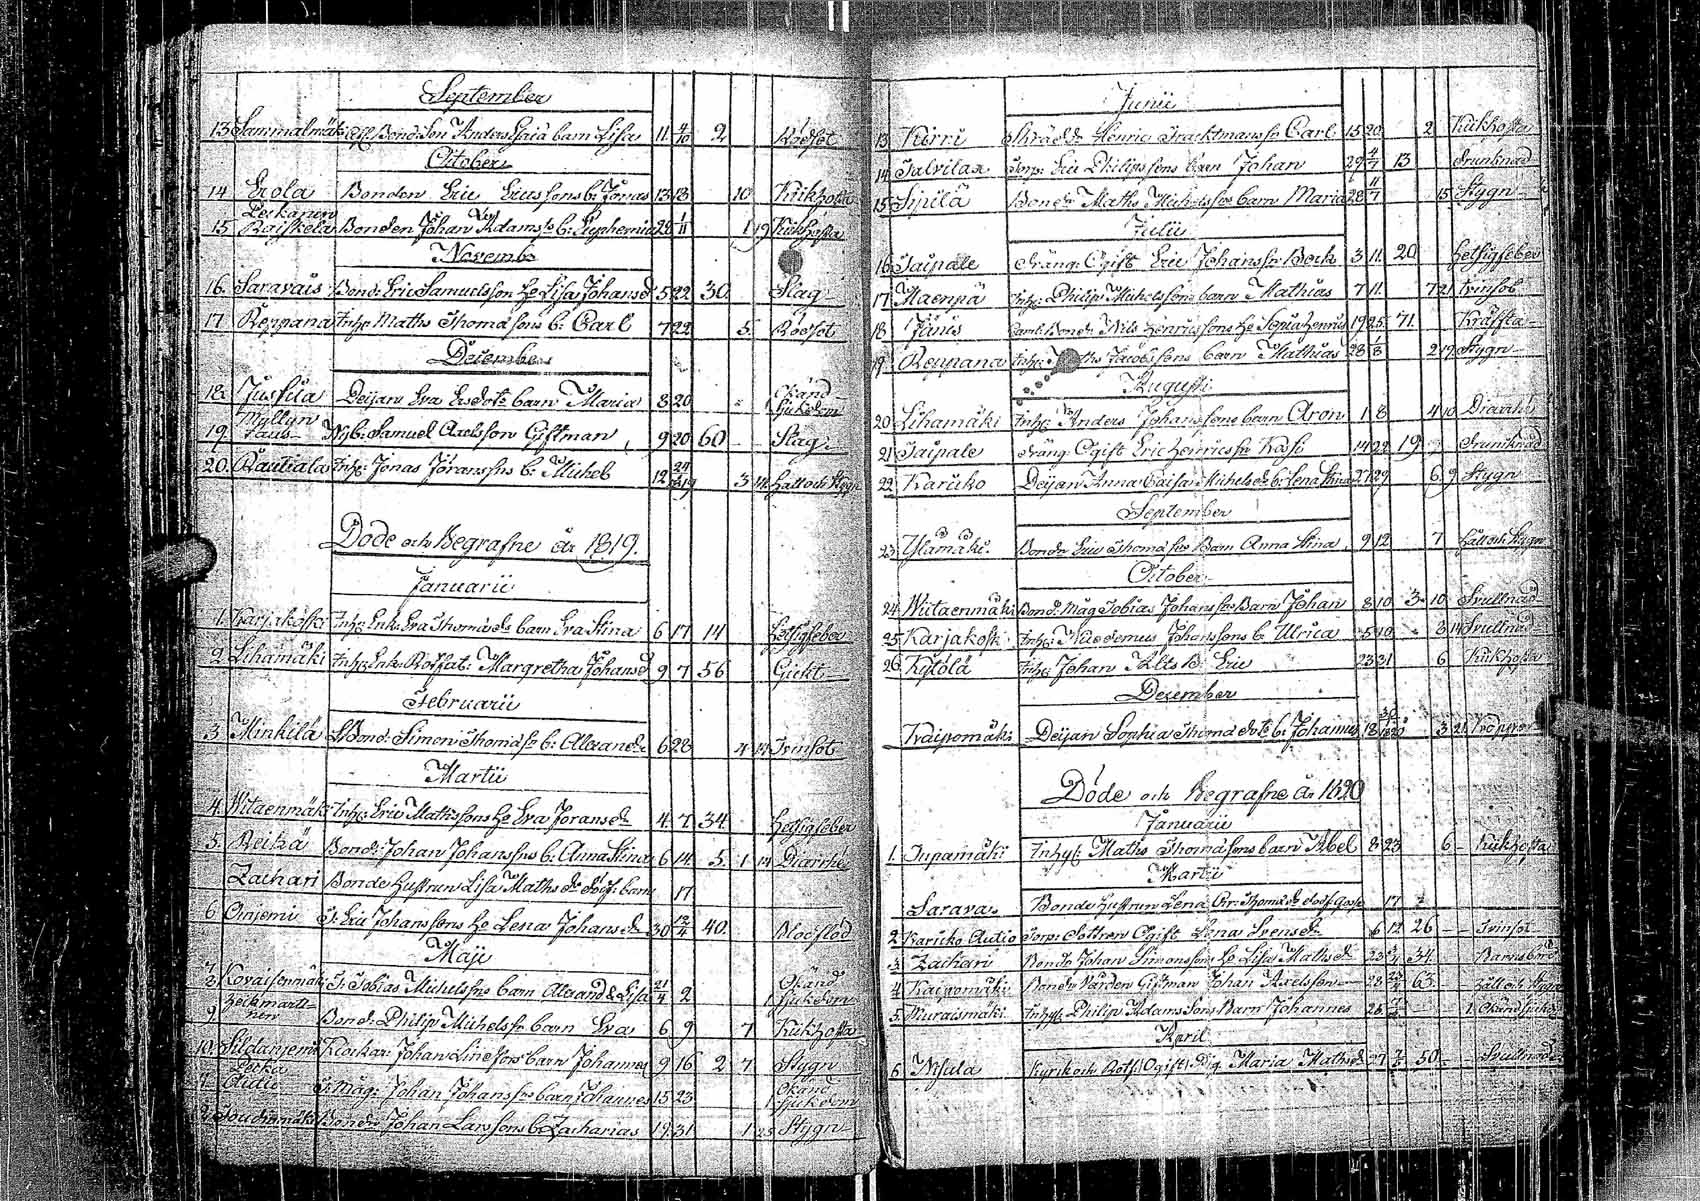 September
13 Sammalmäki Afl. Bond. Son Anders Esaiæ barn Lisa 11 4/10 2 Rödsot
October
14 Erola Bonden Eric Ericssons b: Jonas 13 18 10 Kikhosta
Peckanen
15 Raiskela Bonden Johan Adamss. b: Euphemia 29 1/11 1 19 Kikhosta
Novemb.
16 Saravais Bond: Eric Samuelsson He Lisa Johansd 5 22 30 Slag
17 Reppana Inhys Maths Thomæsons b: Carl 7 22 5 Rödsot
December
18 Juskila Deijan Eva Ersdotr barn Maria 8 20 - 1 Okänd
sjukdom
Myllyn
19 taus Nyb: Samuel Axelsson Giftman 9 20 60 Slag
20 Rautiala Inh: Jonas Jöranssons b: Michel 12 24 3 Håll och Stygn
Döde och Begrafne År 1819.
Januarii
1. Karjakoski Inhys Enk: Eva Thomæd: barn Eva Stina 6 17 14 Hetsigfeber
2 Lihamäki Inhys Enk: Margretha Johansd 9 7 56 Gickt
Februarii
3 Minkilä Bond: Simon Thomæss. b: Alexander 6 28 4 14 Tvinsot
Martii
4. Witaenmäki Inhys Eric Mathssons He Eva Joransd: 4 7 34 Hetsigfeber
5. Reikä Bond: Johan Johanssons b: Anna Stina 6 14 5 1 14 Diarrhé
Zachari Bonde Hustrun Lisa Mathsd: Dödf. barn 17
6 Ojajemi T: Eric Johanssons He Lena Johansd: 30 12/4 40 Blodstöd
Maji
8 Kovaisenmäki T: Tobias Michelssons barn Alexand & Lisa 21/4 2 1 Okänd
sjukdom
Zeckmartinen
9 Bond: Philip Michelss. barn Eva 6 9 7 Kikhosta
10. Sildanjemi Klockar: Johan barn Johannes 9 16 2 7 Stygn
Autio T: Måg: Johan Johansson barn Johannes 15 23 1 Okänd
sjukdom
Bond: Johan Larssons b: Zacharias 19 31 1 25 Stygn
Junii
13 Körri Skrädd: Henric Tracktmanss. Carl 15 20 2 Kikhosta
14 Salvilax Torp: Eric Philipssons barn Johan 29 4/7 13 Drunknad
15 Sipilä Bond: Maths Michelss. barn Maria 28 4/7 15 Stygn
Julii
16 Saipale Dräng: Ogift Eric Johansson Bock 3 11 20 Hetsigfeber
17 Maenpä Inhys: Philip Michelssons barn Mathias 7 11 7 21 Tvinsot
18 Jänis Gaml: Bond: Nils Henricssons He Sophia Henricsd 19 25 71 Kräffta
19 Reppana Inhys: Maths Jacobssons barn Mathias 28 1/8 2 19 Stygn
Augusti
20 Lihamäki Inhys Anders Johanssons barn Aron 1 8 4 10 Diarrhé
21 Saipale Dräng: Ogift Eric Henricsson 14 22 19 Drunknad
22 Karicko Deijan Anna Caisa Michelsd: b: Lena Stina 27 29 6 9 Stygn
September
23 Ylämäki Bond: Eric Thomæson Barn Anna Stina 9 12 7 Håll och Stygn
October
24 Wiitaenmäki Bond: Måg Tobias Johansson Barn Johan 8 10 3 10 Svullnad
25 Karjakosk: Inhys: Nicodemus Johanssons b: Ulrica 5 10 3 14 Svullnad
26 Kytölä Inhys: Johan b: Eric 23 31 6 Kikhosta
December
Kaipomäki Deijan Sophia Thomædotr b: Johannes 18 30 3 21
Döde och Begrafne År 1820
Januarii
1. Tupamäki Inhys: Maths Thomæssons barn Abel 8 23 6 - Kikhosta
Martii
Sarava Bonde Hustrun Lena Thomæd: dödf. Gosse 17
2 Karicko Autio Torp: Dottren Ogift Lena Svensd: 6 12 26 - Tvinsot
3. Zachari Bond: Johan Simonssons He Lisa Mathsd 34 Barnsbörd
4 Kaipomäki Bonde Vården Giftman Johan Axelsson 28 63 Håll och Stygn
5. Kuraismäki Inhys: Philip Adams Sons Barn Johannes 26 1 Okänd sjukd:
April
6 Nisula Kyrkoch Rotf: Ogift Pig. Maria Mathsd: 27 50 Svullnad